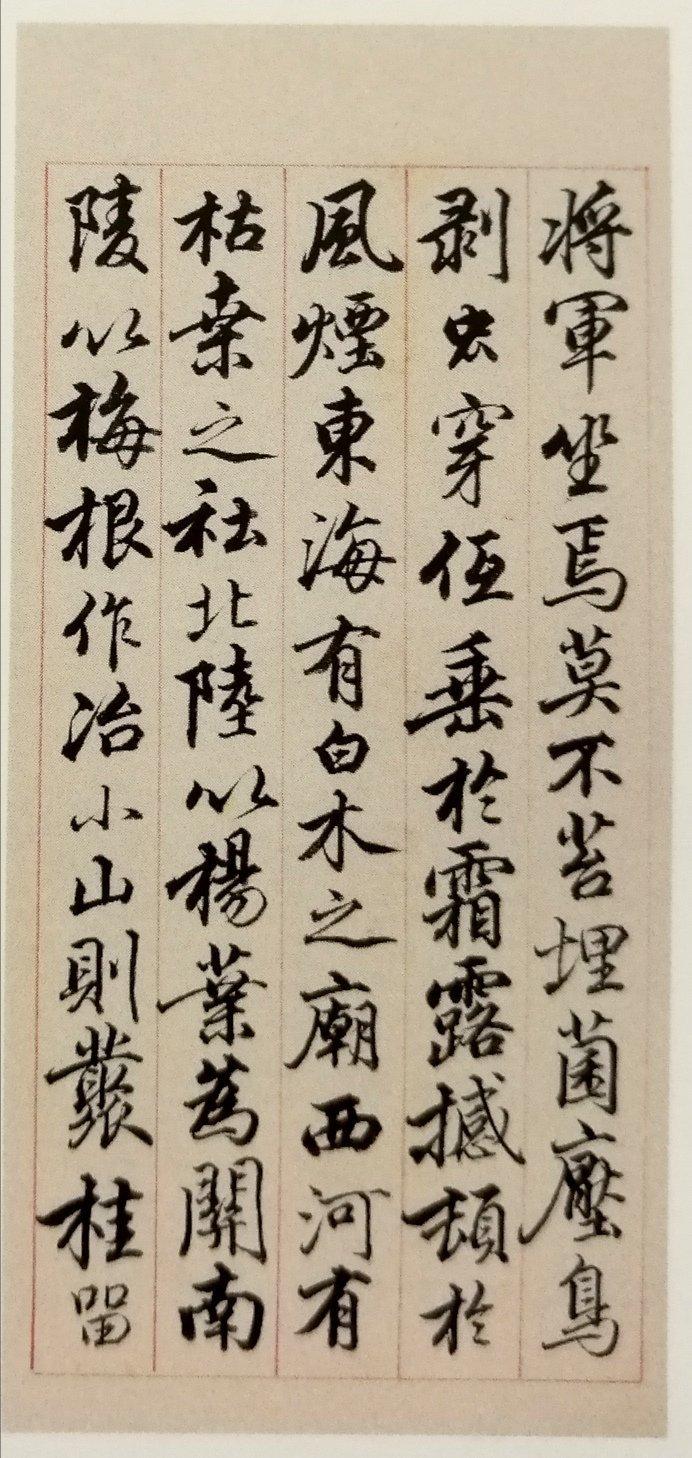 将軍坐焉莫不苔埋菌壓鳥
剥虫穿低垂於霜露撼頓於
風煙東海有白木之廟西河有
枯桒之社北陸以楊葉為關南
陵以梅根作冶小山則叢桂留